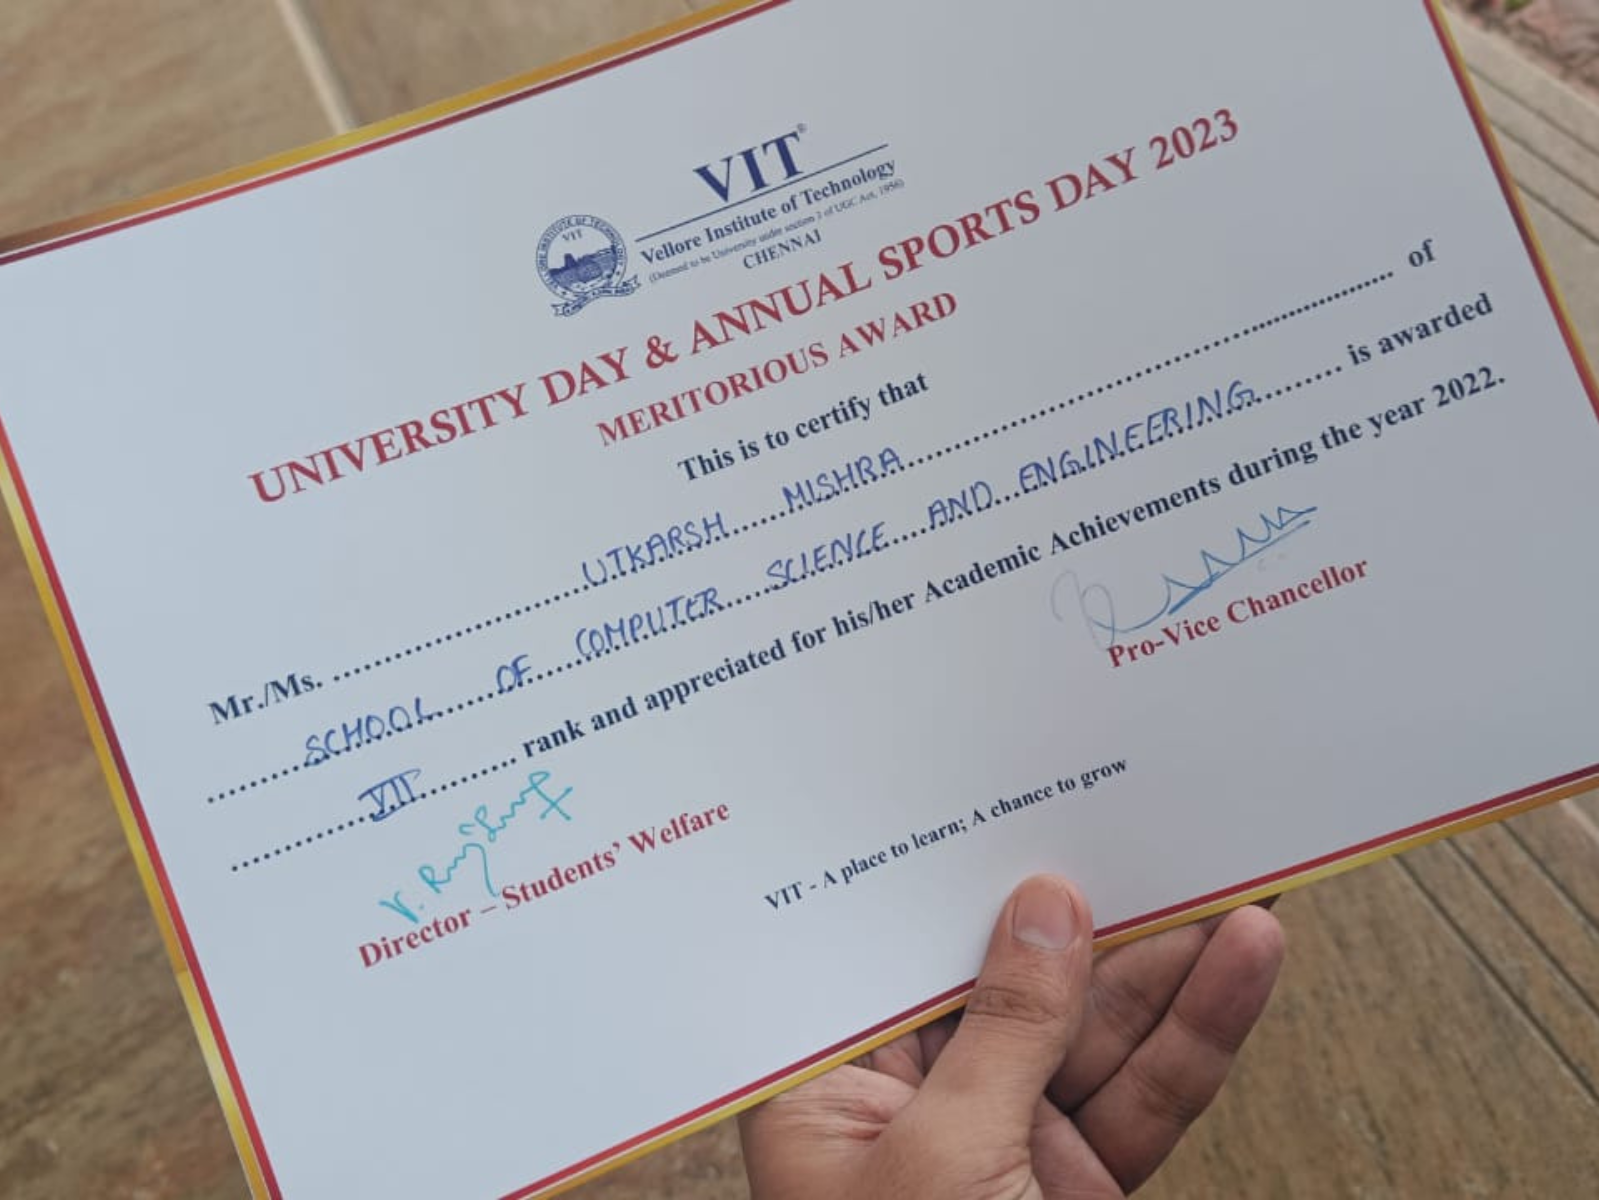 VIT®
Vellore Institute of Technology
(Deemed to be University under section 3 of UGC Act, 1956)
CHENNAI
VIT
UNIVERSITY DAY & ANNUAL SPORTS DAY 2023
MERITORIOUS AWARD
This is to certify that
Mr./Ms. UTKARSH MISHRA of
SCHOOL OF COMPUTER SCIENCE AND ENGINEERING is awarded
VII rank and appreciated for his/her Academic Achievements during the year 2022.
Director – Students' Welfare
Pro-Vice Chancellor
VIT - A place to learn; A chance to grow